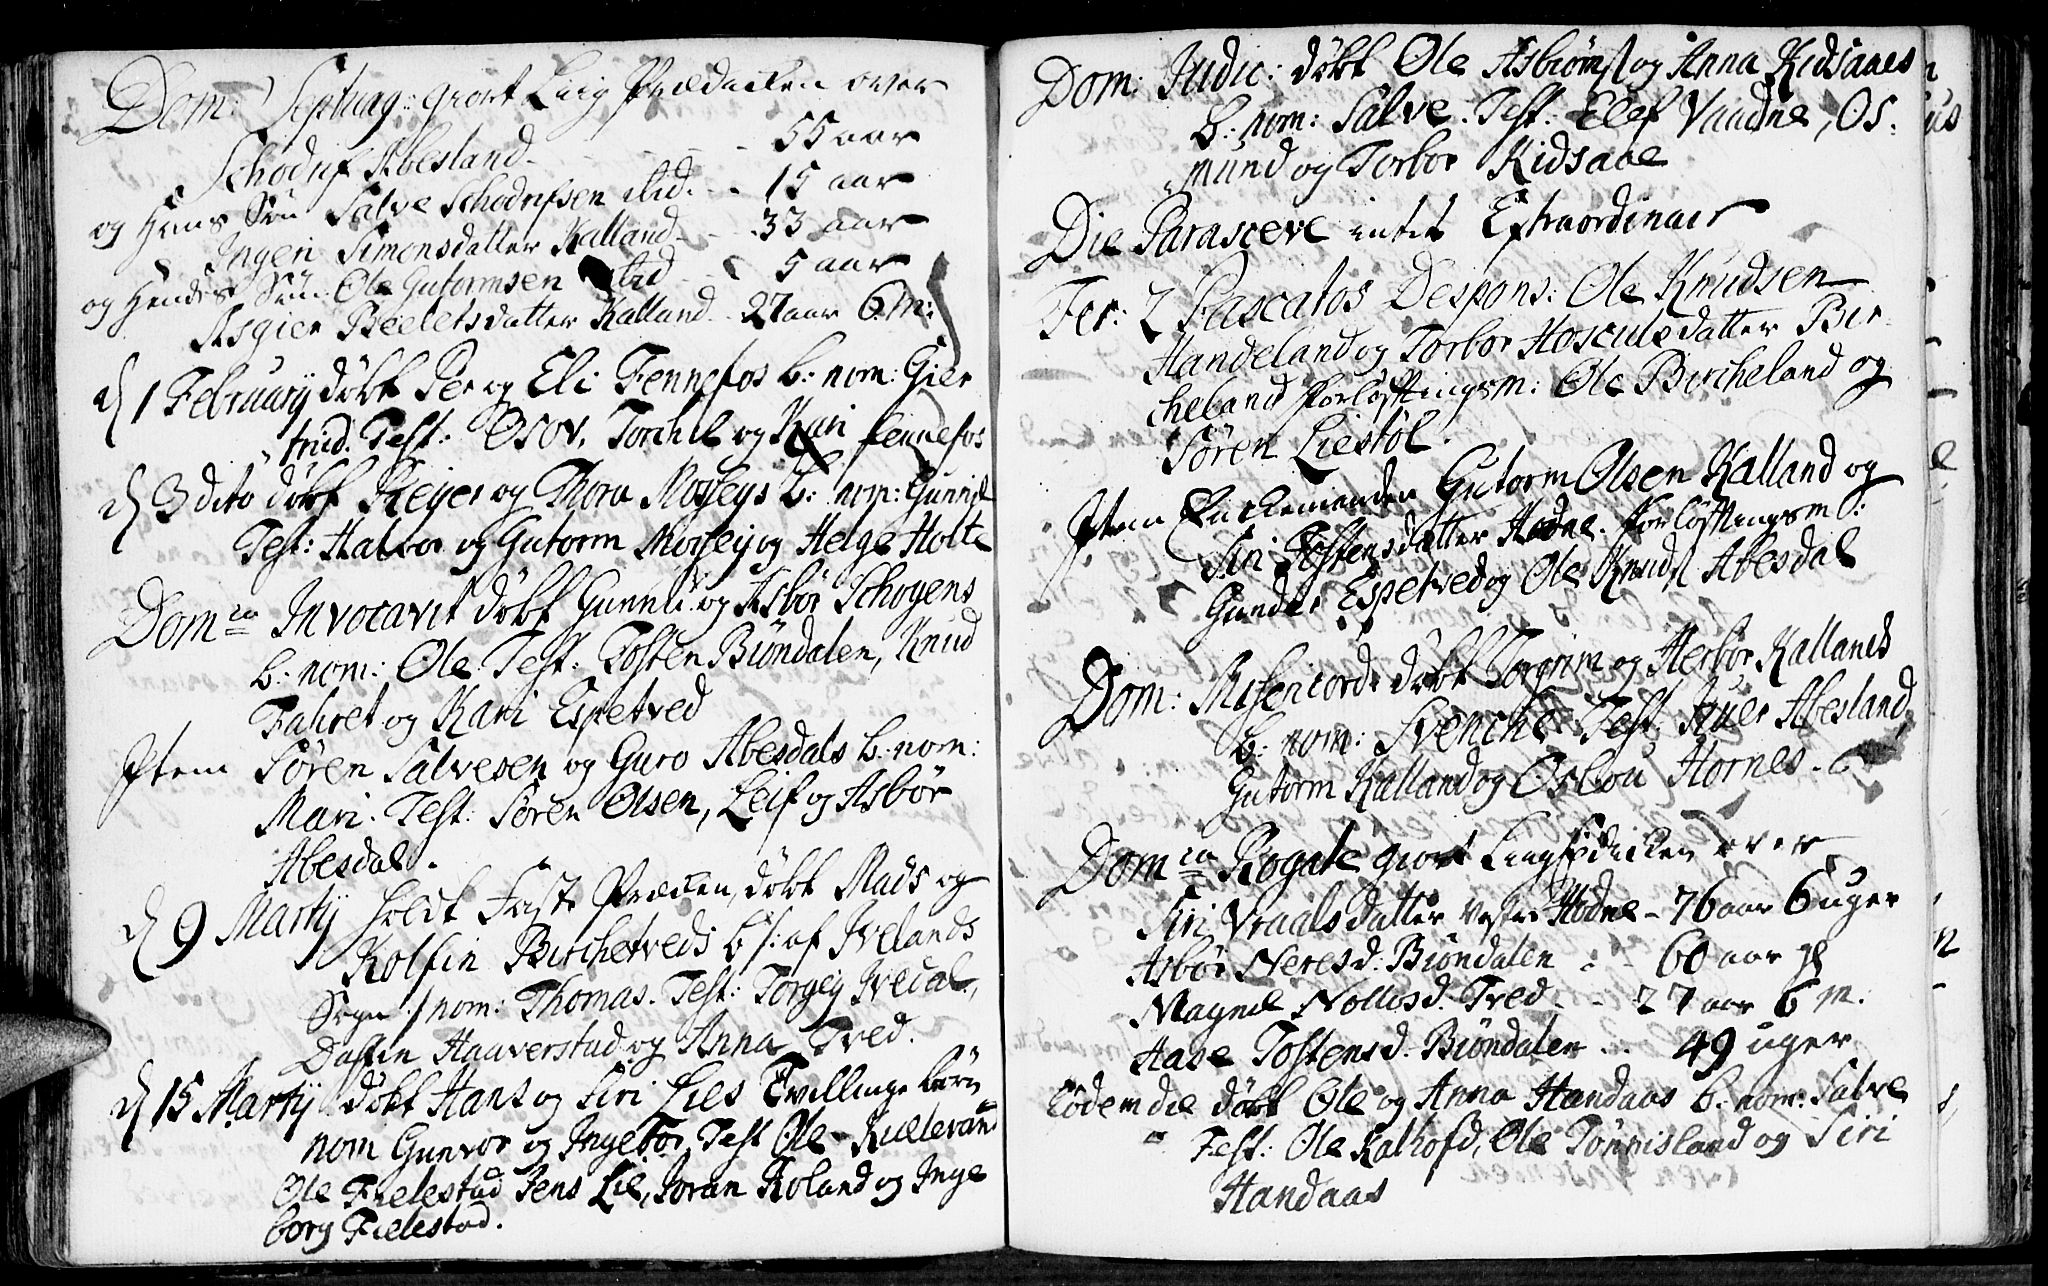 Dom: Septuag: giort Liig Prædiken over
Schodrif Abesland - - - 55 aar
og Hans Søn Salve Schodrifsen ibid: - - 15 aar
Ingeri Simonsdatter Kalland - - 33 aar
og Hendes Søn Ole Gutormsen ibid - - 5 aar
Asgier Beeletsdatter Kalland - 27 aar 6 M:
d 1 February døbt Per og Eli Fennefos b: nom: Gier
trud. Test: Osov, Torchil og Kari fennefos
d 3 dito døbt Reyer og Thora Mosseys b: nom: Gunnild
Test: Halvor og Gutorm Mossey og Helge Holte
Dom ca Invocavit døbt Gunnu. og Asbør Schogens
b: nom: Ole Test: Tosten Biøndalen, Knud
Fahret og Kari Espetved
Item Søren Salvesen og Guro Abesdals b: nom:
Mari. Test: Søren Olsen, Leif og Asbør
Abesdal.
d 9 Martij holdt Faste Prædiken, døbt Mads og
Kolfin Birchetveds b /: af Ivelands
Sogn :/ nom: Thomas. Test: Torgey Ivedal,
Dalten Haaverstad og Anna Tved.
d 15 Martij døbt Hans og Siri Lies Tvillinge børn
nom Gunvor og Ingebor, Test Ole Kullevand
Ole Fielestad Jens Lie, Joran Roland og Inge
borg Fielestad.
Dom: Judic: døbt Ole Asbiøns: og Anna Kidsaaes
b: nom: Salve. Test: Elef Vaadne, Os-
mund og Torbor Kidsaae
Die Parasceve intet Extraordinair
Fer: 2 Pascatos Despons: Ole Knudsen
Handeland og Torbor Hosculsdatter Bir-
cheland forløftingsm: Ole Bircheland og
Søren Liestøl.
Item Enckemanden Gutorm Olsen Kalland og
Siri Tostensdatter Hodne. forløftingsm:
Gunder Espetved og Ole Knuds: Abesdal
Dom: Misericord: døbt Torgrim og Herbor Kallands
b: nom: Svenche Test: Iver Abesland,
Gutorm Kalland og Oslou Hornes.
Dom ca Rogate giort Liigprædiken over
Siri Vraalsdatter Vestre Hodne - 76 aar 6 uger
Asbør Neresd: Biøndalen - - 60 aar
Magnel Nollisd. Tved - - 27 aar 6 M.
Aase Tostensd. Biøndalen - - 49 uger
Eodem die døbt Ole og Anna Handaas b: nom: Salve
Test: Ole Kalhofd, Ole Tønnisland og Siri
Handaas